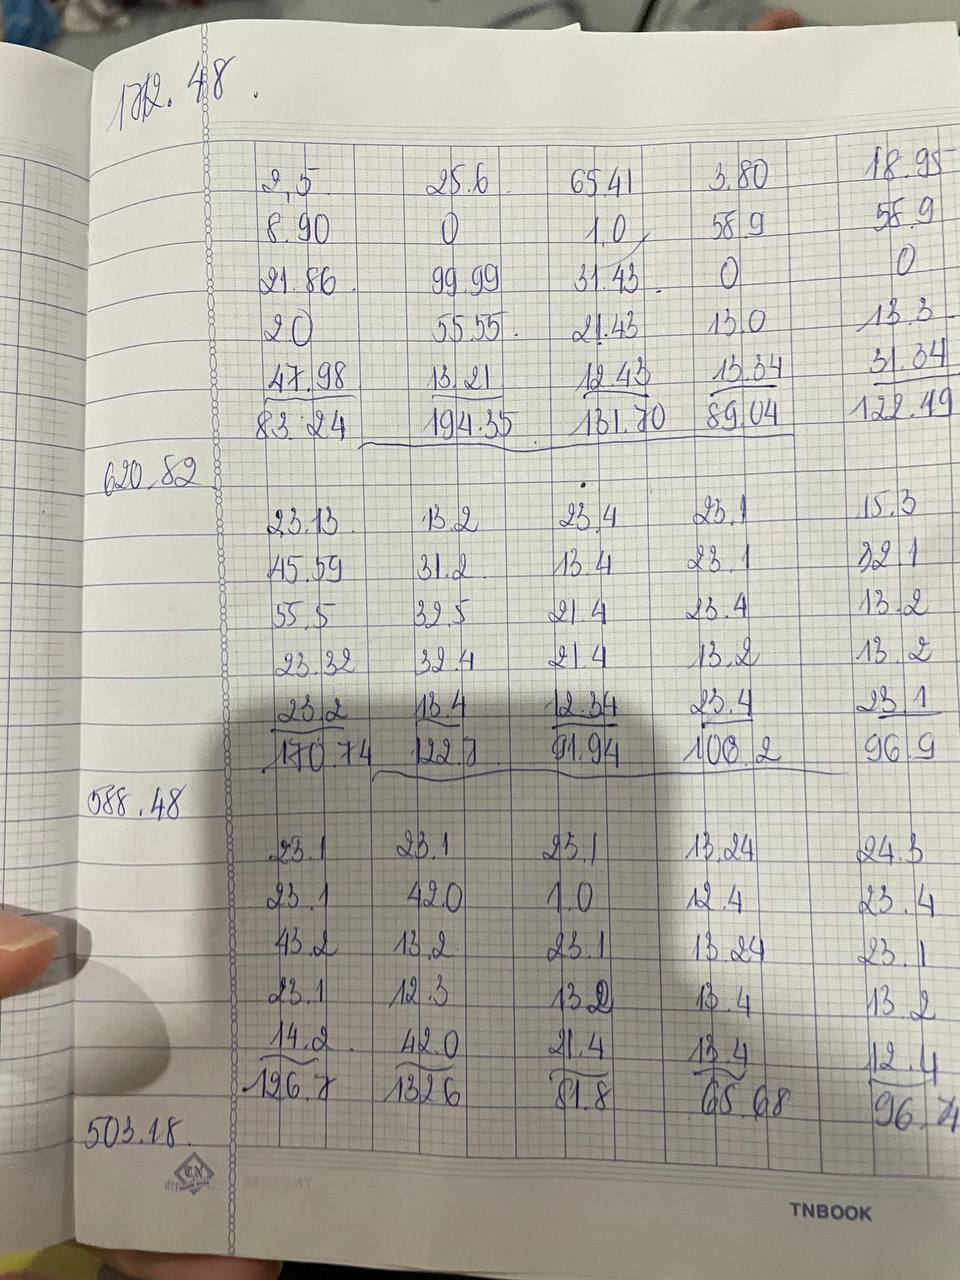 172.48.
2,5 25.6 65.41 3.80 18.95
8.90 0 1.0 58.9 58.9
21.86 99.99 31.43 0 0
2.0 55.55 21.43 13.0 13.3
47.98 13.21 12.43 13.34 31.34
83.24 194.35 131.70 89.04 122.49
620.82
23.13 13.2 23.4 23.1 15.3
45.59 31.2 13.4 23.1 32.1
55.5 32.5 21.4 25.4 13.2
23.32 32.4 21.4 13.2 13.2
23.2 13.4 12.34 23.4 23.1
170.74 122.7 91.94 108.2 96.9
588.48
23.1 23.1 23.1 13.24 24.3
23.1 42.0 1.0 12.4 23.4
43.2 13.2 23.1 13.24 23.1
23.1 12.3 13.2 13.4 13.2
14.2 42.0 21.4 13.4 12.4
126.7 132.6 81.8 65.68 96.4
503.18
TNBOOK